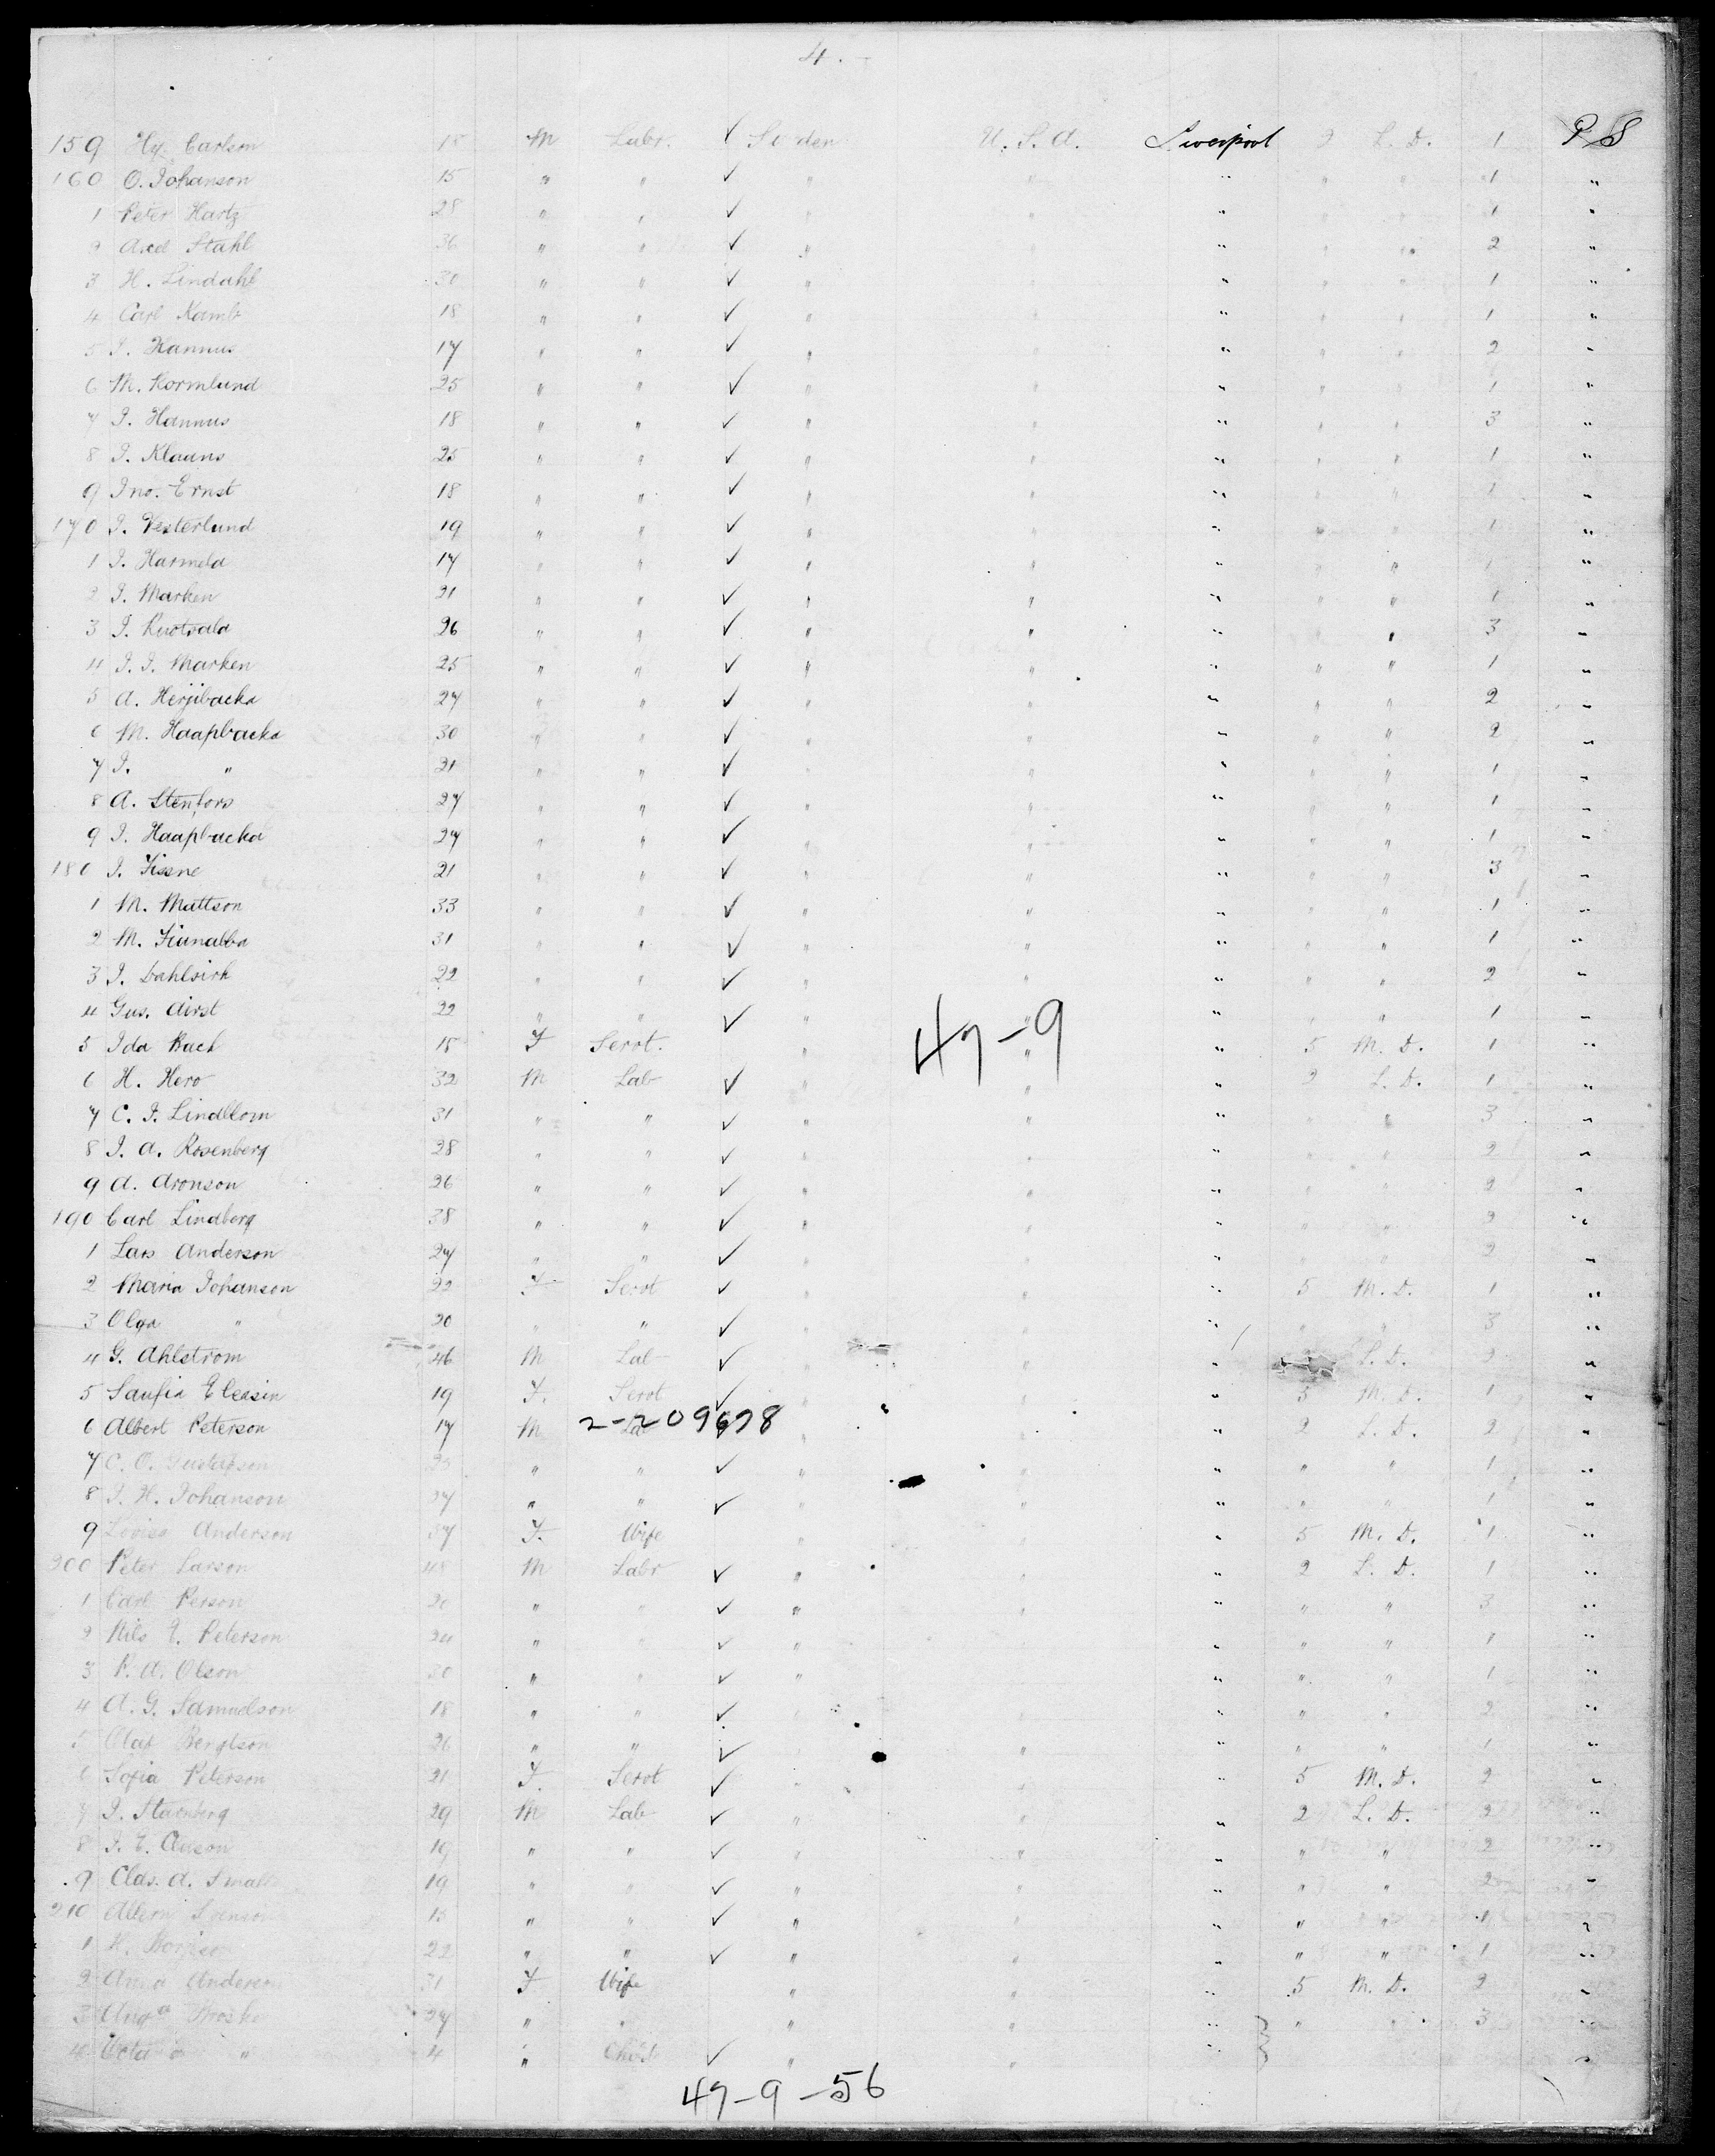 4.
159 Hy. Carlson 18 M Labr. ✓ Sweden U.S.A. Liverpool 2 L.D. 1 P S
160 O. Johanson 15 " " ✓ " " " " " 1 "
1 Peter Hartz 28 " " ✓ " " " " " 1 "
2 Axel Stahl 36 " " ✓ " " " " " 2 "
3 H. Lindahl 30 " " ✓ " " " " " 1 "
4 Carl Kamb 18 " " ✓ " " " " " 1 "
5 J. Hannus 17 " " ✓ " " " " " 2 "
6 M. Kormlund 25 " " ✓ " " " " " 1 "
7 J. Hannus 18 " " ✓ " " " " " 3 "
8 J. Klauns 25 " " ✓ " " " " " 1 "
9 Jno. Ernst 18 " " ✓ " " " " " 1 "
170 J. Vesterlund 19 " " ✓ " " " " " 1 "
1 J. Harmela 17 " " ✓ " " " " " 1 "
2 J. Marken 21 " " ✓ " " " " " 1 "
3 J. 26 " " ✓ " " " " " 3 "
4 J. J. Marken 25 " " ✓ " " " " " 1 "
5 A. Herjibacka 27 " " ✓ " " " " " 2 "
6 M. Haapbacka 30 " " ✓ " " " " " 2 "
7 J. " 21 " " ✓ " " " " " 1 "
8 A. Stenfors 27 " " ✓ " " " " " 1 "
9 J. Haapbacka 27 " " ✓ " " " " " 1 "
180 J. 21 " " ✓ " " " " " 3 "
1 M. Mattson 33 " " ✓ " " " " " 1 "
2 M. 31 " " ✓ " " " " " 1 "
3 J. Dahlsirk 22 " " ✓ " " " " " 2 "
4 Gus. Airst 22 " " ✓ " " " " " 1 "
47-9
5 Ida Back 18 F Servt. " " " 5 M.D. 1 "
6 H. Hero 32 M Lab ✓ " " " 2 L.D. 1 "
7 C. J. Lindblom 31 " " ✓ " " " " " 3 "
8 J. A. Rosenberg 28 " " ✓ " " " " " 2 "
9 A. Aronson 26 " " ✓ " " " " " 2 "
190 Carl Lindberg 38 " " ✓ " " " " " 2 "
1 Lars Anderson 27 " " ✓ " " " " " 2 "
2 Maria Johanson 22 F Servt ✓ " " " 5 M.D. 1 "
3 Olga " 20 " " ✓ " " " " " 3 "
4 G. Ahlstrom 46 M Lab ✓ " " " L.D. 2 "
5 Saufia Eleasin 19 F. Servt ✓ " " " 5 M.D. 1 "
6 Albert Peterson 17 M Lab ✓ " " " 2 L.D. 2 "
2-209678
7 C. O. Gustafson 25 " " ✓ " " " " " 1 "
8 J. H. Johanson 37 " " ✓ " " " " " 1 "
9 Lovisa Anderson 37 F. Wife " " " 5 M.D. 1 "
200 Peter Larson 48 M Labr ✓ " " " 2 L.D. 1 "
1 Carl Person 20 " " ✓ " " " " " 3 "
2 Nils E. Peterson 24 " " ✓ " " " " " 1 "
3 P. A. Olson 30 " " ✓ " " " " " 1 "
4 A. G. Samuelson 18 " " ✓ " " " " " 2 "
5 Olaf Bengtson 26 " " ✓ " " " " " 1 "
6 Sofia Peterson 21 F. Servt ✓ " " " 5 M.D. 2 "
7 J. Starnberg 29 M Lab ✓ " " " 2 L.D. 2 "
8 J. E. 19 " " ✓ " " " " " 2 "
9 A. 19 " " ✓ " " " " " 2 "
210 Svenson 18 " " ✓ " " " " " 1 "
1 H. 22 " " ✓ " " " " " 1 "
2 Anna Anderson 31 F Wife " " " 5 M.D. 2 "
3 Auga 27 " " " " " " 3 "
4 " 4 " Child ✓ " " " "
47-9-56